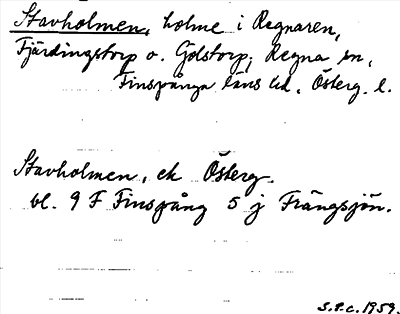 Stavholmen, holme i Regnaren,
Fjärdingstorp o. Golstorp, Regna sn,
Finspånga läns hd, Österg. l.
Stavholmen, ek Österg.
bl. 9 F Finspång 5 j Frängsjön.
S.P.c. 1959.